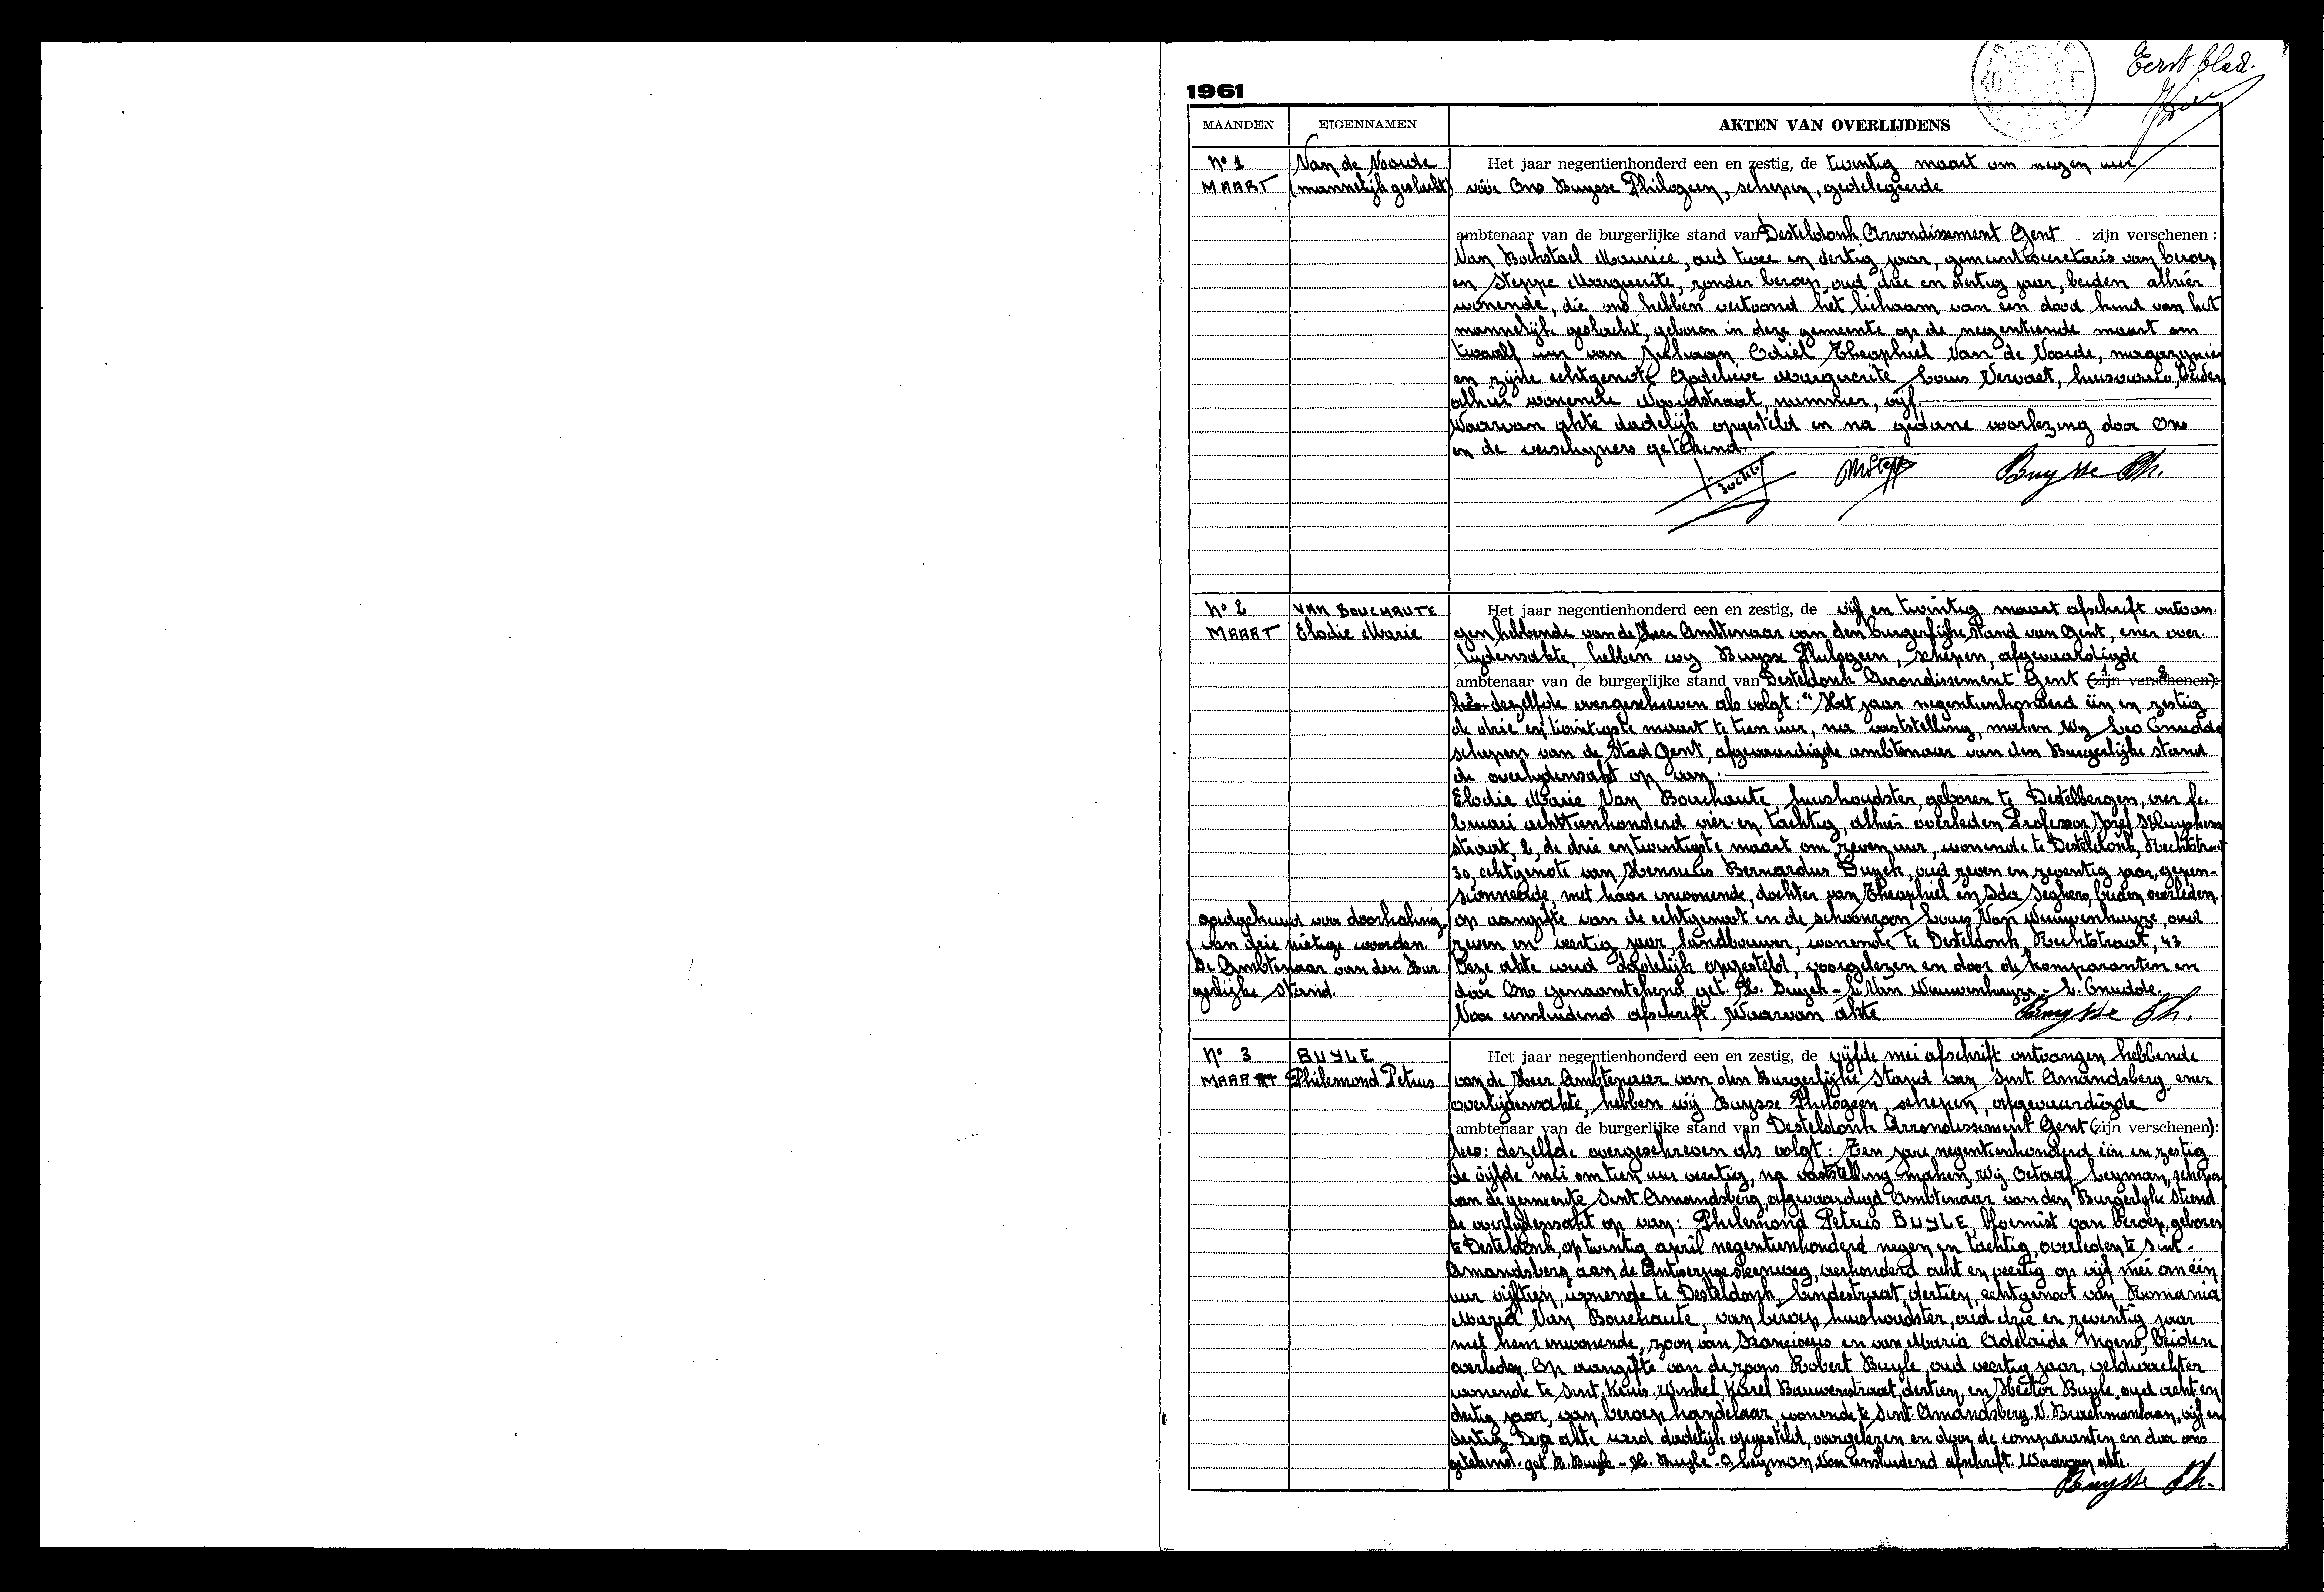 Eerst blad.
1961
MAANDEN EIGENNAMEN AKTEN VAN OVERLIJDENS
N° 1 Van de Voorde Het jaar negentienhonderd een en zestig, de twintig maart om negen uur
MAART (mannelijk geslacht) vóór Ons Buysse Philogeen, schepen, gedelegeerde
ambtenaar van de burgerlijke stand van Desteldonk Arrondissement Gent zijn verschenen :
Van Bockstael Maurice, oud twee en dertig jaar, gemeentsecretaris van beroep
en Steppe Marguerite, zonder beroep, oud drie en dertig jaar, beiden alhier
wonende, die ons hebben vertoond het lichaam van een dood kind van het
mannelijk geslacht, geboren in deze gemeente op de negentiende maart om
twaalf uur van Odiel Theophiel Van de Voorde, magazynier
en zijne echtgenote Godelieve Marguerite Louis Vervaet, huisvrouw, beiden
alhier wonende Woordstraat, nummer, vijf.
Waarvan akte dadelijk opgesteld en na gedane voorlezing door Ons
en de verschijners getekend.
MSteppe Buysse Ph.
N° 2 VAN BOUCHAUTE Het jaar negentienhonderd een en zestig, de vijf en twintig maart afschrift ontvan-
MAART Elodie Marie gen hebbende van de Heer Ambtenaar van den burgerlijke stand van Gent, ener over-
lijdensakte, hebben wij Buysse Philogeen, schepen, afgevaardigde
ambtenaar van de burgerlijke stand van Desteldonk Arrondissement Gent (zijn verschenen):
dezelfde overgeschreven als volgt: "Het jaar negentienhonderd één en zestig
de drie en twintigste maart te tien uur, na vaststelling, maken Wij Leo Cnudde
schepen van de Stad Gent, afgevaardigde ambtenaar van den Burgerlijke stand
de overlijdensakt op van:
Elodie Marie Van Bouchaute, huishoudster, geboren te Destelbergen, vier fe-
bruari achttienhonderd vier en tachtig, alhier overleden Professor Jozef Kluyskens
straat, 2, de drie en twintigste maart om zeven uur, wonende te Desteldonk, Rechtstraat
30, echtgenote van Henricus Bernardus Buyck, oud zeven en zeventig jaar, gepen-
sionneerde, met haar inwonende, dochter van Theophiel en Ida Seghers, beiden overleden
goedgekeurd voor doorhaling op aangifte van de echtgenoot en de schoonzoon Louis Van Nieuwenhuyze, oud
van drie nietige woorden. zeven en veertig jaar, landbouwer, wonende te Desteldonk, Rechtstraat, 43
De Ambtenaar van den Bur- Deze akte werd dadelijk opgesteld, voorgelezen en door de komparanten en
gerlijke stand. door Ons genaamtekend, get. H. Buyck - L. Van Nieuwenhuyze - L. Cnudde.
Voor eensluidend afschrift. Waarvan akte. Buysse Ph.
N° 3 BUYLE Het jaar negentienhonderd een en zestig, de vijfde mei afschrift ontvangen hebbende
MAART Philemond Petrus van de Heer Ambtenaar van den Burgerlijke Stand van Sint Amandsberg, ener
overlijdensakte, hebben wij Buysse Philogeen, schepen, afgevaardigde
ambtenaar van de burgerlijke stand van Desteldonk Arrondissement Gent (zijn verschenen):
dezelfde overgeschreven als volgt: Ten jare negentienhonderd één en zestig
de vijfde mei om tien uur veertig, na vaststelling maken, Wij Octaaf Leyman, schepen
van de gemeente Sint Amandsberg, afgevaardigd Ambtenaar van den Burgerlyke stand
de overlijdensakt op van: Philemond Petrus BUYLE, bloemist van beroep, geboren
te Desteldonk, op twintig april negentienhonderd negen en tachtig, overleden te Sint-
Amandsberg aan de Antwerpse steenweg, vierhonderd acht en veertig op vijf mei om één
uur vijftien, wonende te Desteldonk, Lindestraat, dertien, echtgenoot van Romania
Maria Van Bouchaute, van beroep huishoudster, oud drie en zeventig jaar
met hem inwonende, zoon van Franciscus en van Maria Adelaide Moens, beiden
overleden. Op aangifte van de zoons Robert Buyle, oud veertig jaar, veldwachter
wonende te Sint Kruis-Winkel, Karel Bauwensstraat, dertien, en Hector Buyle, oud acht en
dertig jaar, van beroep handelaar, wonende te Sint Amandsberg, V. Braeckmanlaan, vijf en
dertig. Deze akte werd dadelijk opgesteld, voorgelezen en door de comparanten en door ons
getekend. get R. Buyle - H. Buyle - O. Leyman, Voor eensluidend afschrift. Waarvan akte.
Buysse Ph.